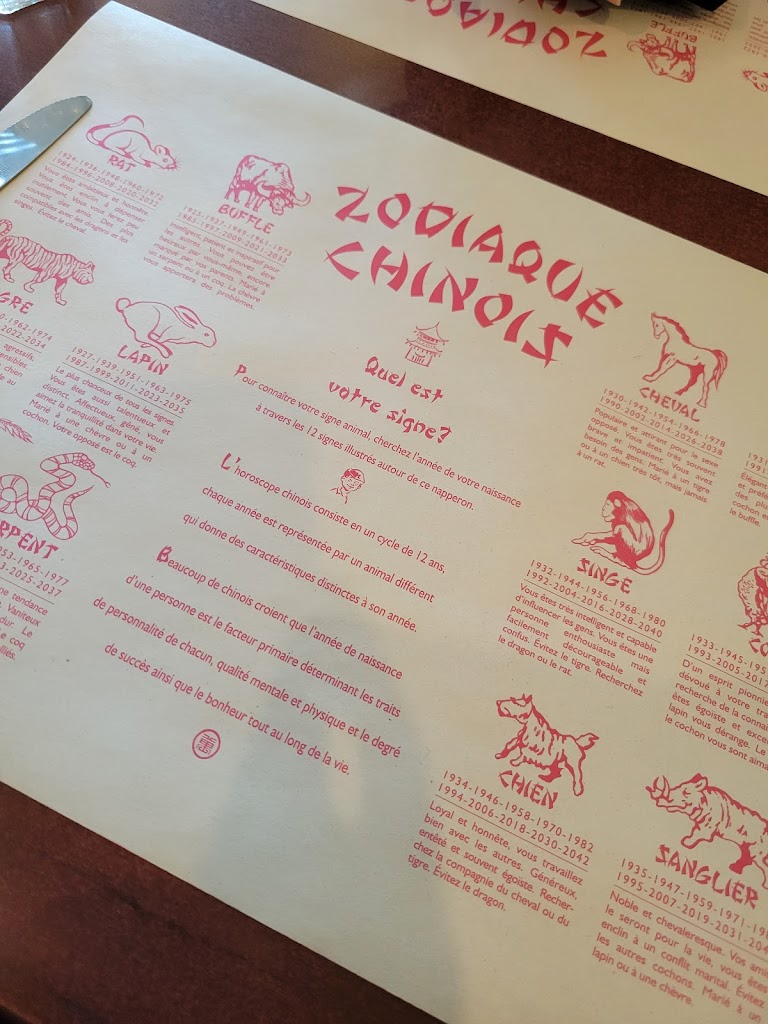 ZODIAQUE
CHINOIS
Quel est
votre signe?
Pour connaître votre signe animal, cherchez l'année de votre naissance
à travers les 12 signes illustrés autour de ce napperon.
L'horoscope chinois consiste en un cycle de 12 ans,
chaque année est représentée par un animal différent
qui donne des caractéristiques distinctes à son année.
Beaucoup de chinois croient que l'année de naissance
d'une personne est le facteur primaire déterminant les traits
de personnalité de chacun, qualité mentale et physique et le degré
de succès ainsi que le bonheur tout au long de la vie.
RAT
1924-1936-1948-1960-1972
1984-1996-2008-2020-2032
Vous êtes ambitieux et honnête.
Vous êtes enclin à dépenser
inutilement. Vous vous ferez peu
souvent des amis. Des plus
compatibles avec les dragons et les
singes. Évitez le cheval.
BUFFLE
1925-1937-1949-1961-1973
1985-1997-2009-2021-2033
Intelligent, patient et inspiratif pour
les autres. Vous pouvez être
heureux par vous-même, encore
marqué par vos parents. Marié à
un serpent ou à un coq. La chèvre
vous apportera des problèmes.
GRE
0-1962-1974
-2022-2034
agressifs.
ensibles
chien
le au
LAPIN
1927-1939-1951-1963-1975
1987-1999-2011-2023-2035
Le plus chanceux de tous les signes.
Vous êtes aussi talentueux et
distinct. Affectueux, gêné, vous
aimez la tranquilité dans votre vie.
Marié à une chèvre ou à un
cochon. Votre opposé est le coq.
RPENT
953-1965-1977
3-2025-2037
ne tendance
Vaniteux
dur. Le
e coq
lliés.
CHEVAL
1930-1942-1954-1966-1978
1990-2002-2014-2026-2038
Populaire et attirant pour le sexe
opposé. Vous êtes très souvent
brave et impatient. Vous avez
besoin des gens. Marié à un tigre
ou à un chien très tôt, mais jamais
à un rat.
1931
1991
Élégant
et préfé
des plu
cochon e
le buffle.
SINGE
1932-1944-1956-1968-1980
1992-2004-2016-2028-2040
Vous êtes très intelligent et capable
d'influencer les gens. Vous êtes une
personne enthousiaste mais
facilement décourageable et
confus. Évitez le tigre. Recherchez
le dragon ou le rat.
CO
1933-1945-195
1993-2005-2017
D'un esprit pionnie
dévoué à votre tra
recherche de la connai
êtes égoiste et exce
lapin vous dérange. Le
le cochon vous sont aima
CHIEN
1934-1946-1958-1970-1982
1994-2006-2018-2030-2042
Loyal et honnête, vous travaillez
bien avec les autres. Généreux,
entêté et souvent égoïste. Recher-
chez la compagnie du cheval ou du
tigre. Évitez le dragon.
SANGLIER
1935-1947-1959-1971-198
1995-2007-2019-2031-204
Noble et chevaleresque. Vos ami
le seront pour la vie, vous êtes
enclin à un conflit marital. Évitez
les autres cochons. Marié à un
lapin ou à une chèvre.
ZODIAQ
BUFFLE